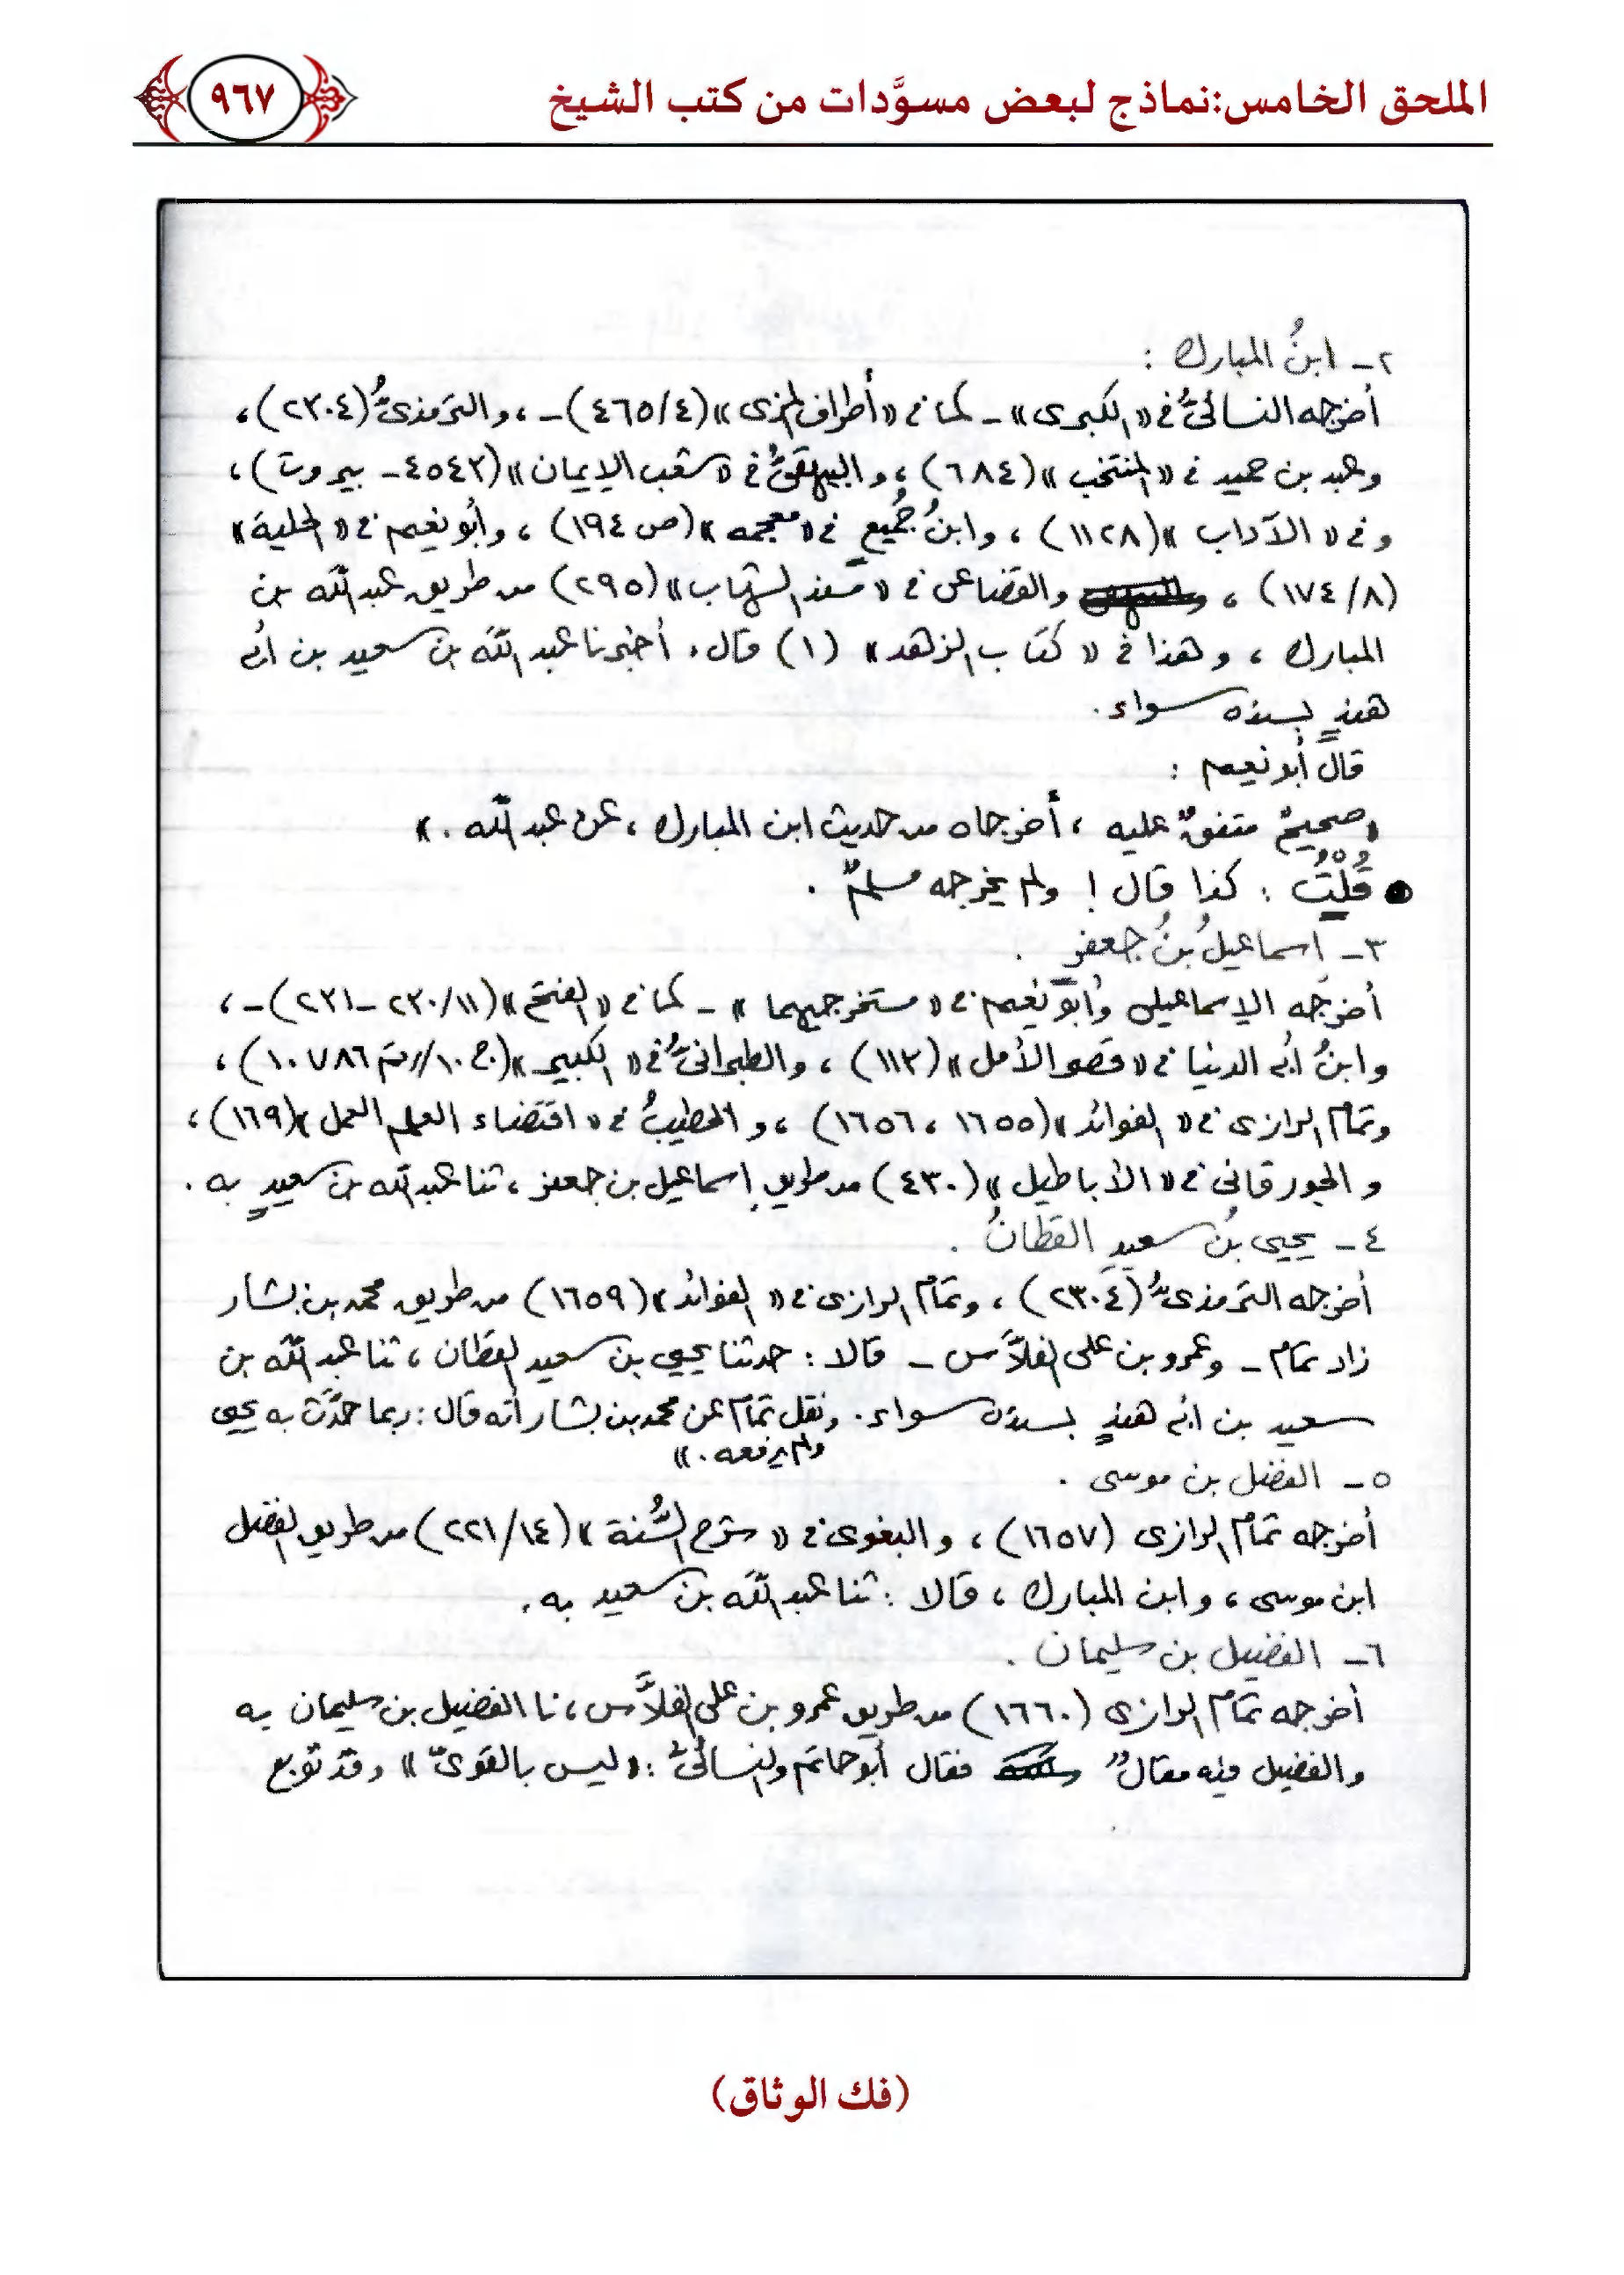 الملحق الخامس: نماذج لبعض مسوَّدات من كتب الشيخ
٩٦٧
٢- ابنُ المبارك :
أخرجه النسائيُّ في «الكبرى» - كما في «أطراف المزى» (٤/٤٦٥) -، والترمذيُّ (٢٣٠٤)،
وعبد بن حميد في «المنتخب» (٦٨٤)، والبيهقيُّ في «شعب الإيمان» (٤٥٤٢ - بيروت)،
وفي «الآداب» (١١٢٨)، وابنُ جُميعٍ في «معجمه» (ص ١٩٤)، وأبو نعيم في «الحلية»
(٨/١٧٤)، والقضاعى في «مسند الشهاب» (٢٩٥) من طريق عبد الله بن
المبارك، وهذا في «كتاب الزهد» (١) قال: أخبرنا عبد الله بن سعيد بن أبى
هندٍ بسنده سواء.
قال أبو نعيم :
«صحيحٌ متفقٌ عليه، أخرجاه من حديث ابن المبارك، عن عبد الله.»
● قُلْتُ : كذا قال! ولم يخرجه مسلمٌ.
٣- اسماعيلُ بنُ جعفرٍ.
أخرجَه الإسماعيلى وأبو نُعيم في «مستخرجيهما» - كما في «الفتح» (١١/٢٣٠-٢٣١) -،
وابنُ أبى الدنيا في «قصر الأمل» (١١٢)، والطبرانيُّ في «الكبير» (ج١٠/رقم ١٠٧٨٦)،
وتمام الرازى في «الفوائد» (١٦٥٥، ١٦٥٦)، والخطيبُ في «اقتضاء العلم العمل» (١٦٩)،
والجورقانى في «الأباطيل» (٤٣٠) من طريق إسماعيل بن جعفر، ثنا عبد الله بن سعيدٍ به.
٤- يحيى بنُ سعيدٍ القطانُ.
أخرجه الترمذىُّ (٢٣٠٤)، وتمام الرازى في «الفوائد» (١٦٥٩) من طريق محمد بن بشار
زاد تمام - وعمرو بن على الفلاَّس - قالا : حدثنا يحيى بن سعيد القطان، ثنا عبد الله بن
سعيد بن أبى هندٍ بسنده سواء. ونقل تمام عن محمد بن بشار أنه قال: ربما حدَّث به يحيى
ولم يرفعه.»
٥- الفضل بن موسى.
أخرجه تمام الرازى (١٦٥٧)، والبغوى في «شرح السُّنة» (١٤/٢٢١) من طريق الفضل
ابن موسى، وابن المبارك، قالا : ثنا عبد الله بن سعيد به.
٦- الفضيل بن سليمان.
أخرجه تمام الرازى (١٦٦٠) من طريق عمرو بن على الفلاَّس، نا الفضيل بن سليمان به
والفضيل فيه مقالٌ فقال أبو حاتم والنسائىُّ : «ليس بالقوىّ» وقد توبع
(فك الوثاق)